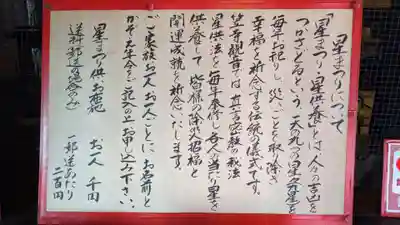 「星まつり」について
「星まつり・星供養」とは、人々の吉凶を
つかさどるという、天の九つの星々を
毎年お祀りし、災いごとを取り除き
幸福を祈念する伝統の儀式です。
笠寺観音では真言密教の秘法
星供法を毎年奉修し、各人の当り星を
供養して、皆様の除災招福と
開運成就を祈念いたします。
ご家族お一人お一人ごとに、お名前と
かぞえ年令をご記入の上お申し込み下さい。
星まつり供お志 お一人 千円
送料(郵送の場合のみ) 一郵送あたり 二百円